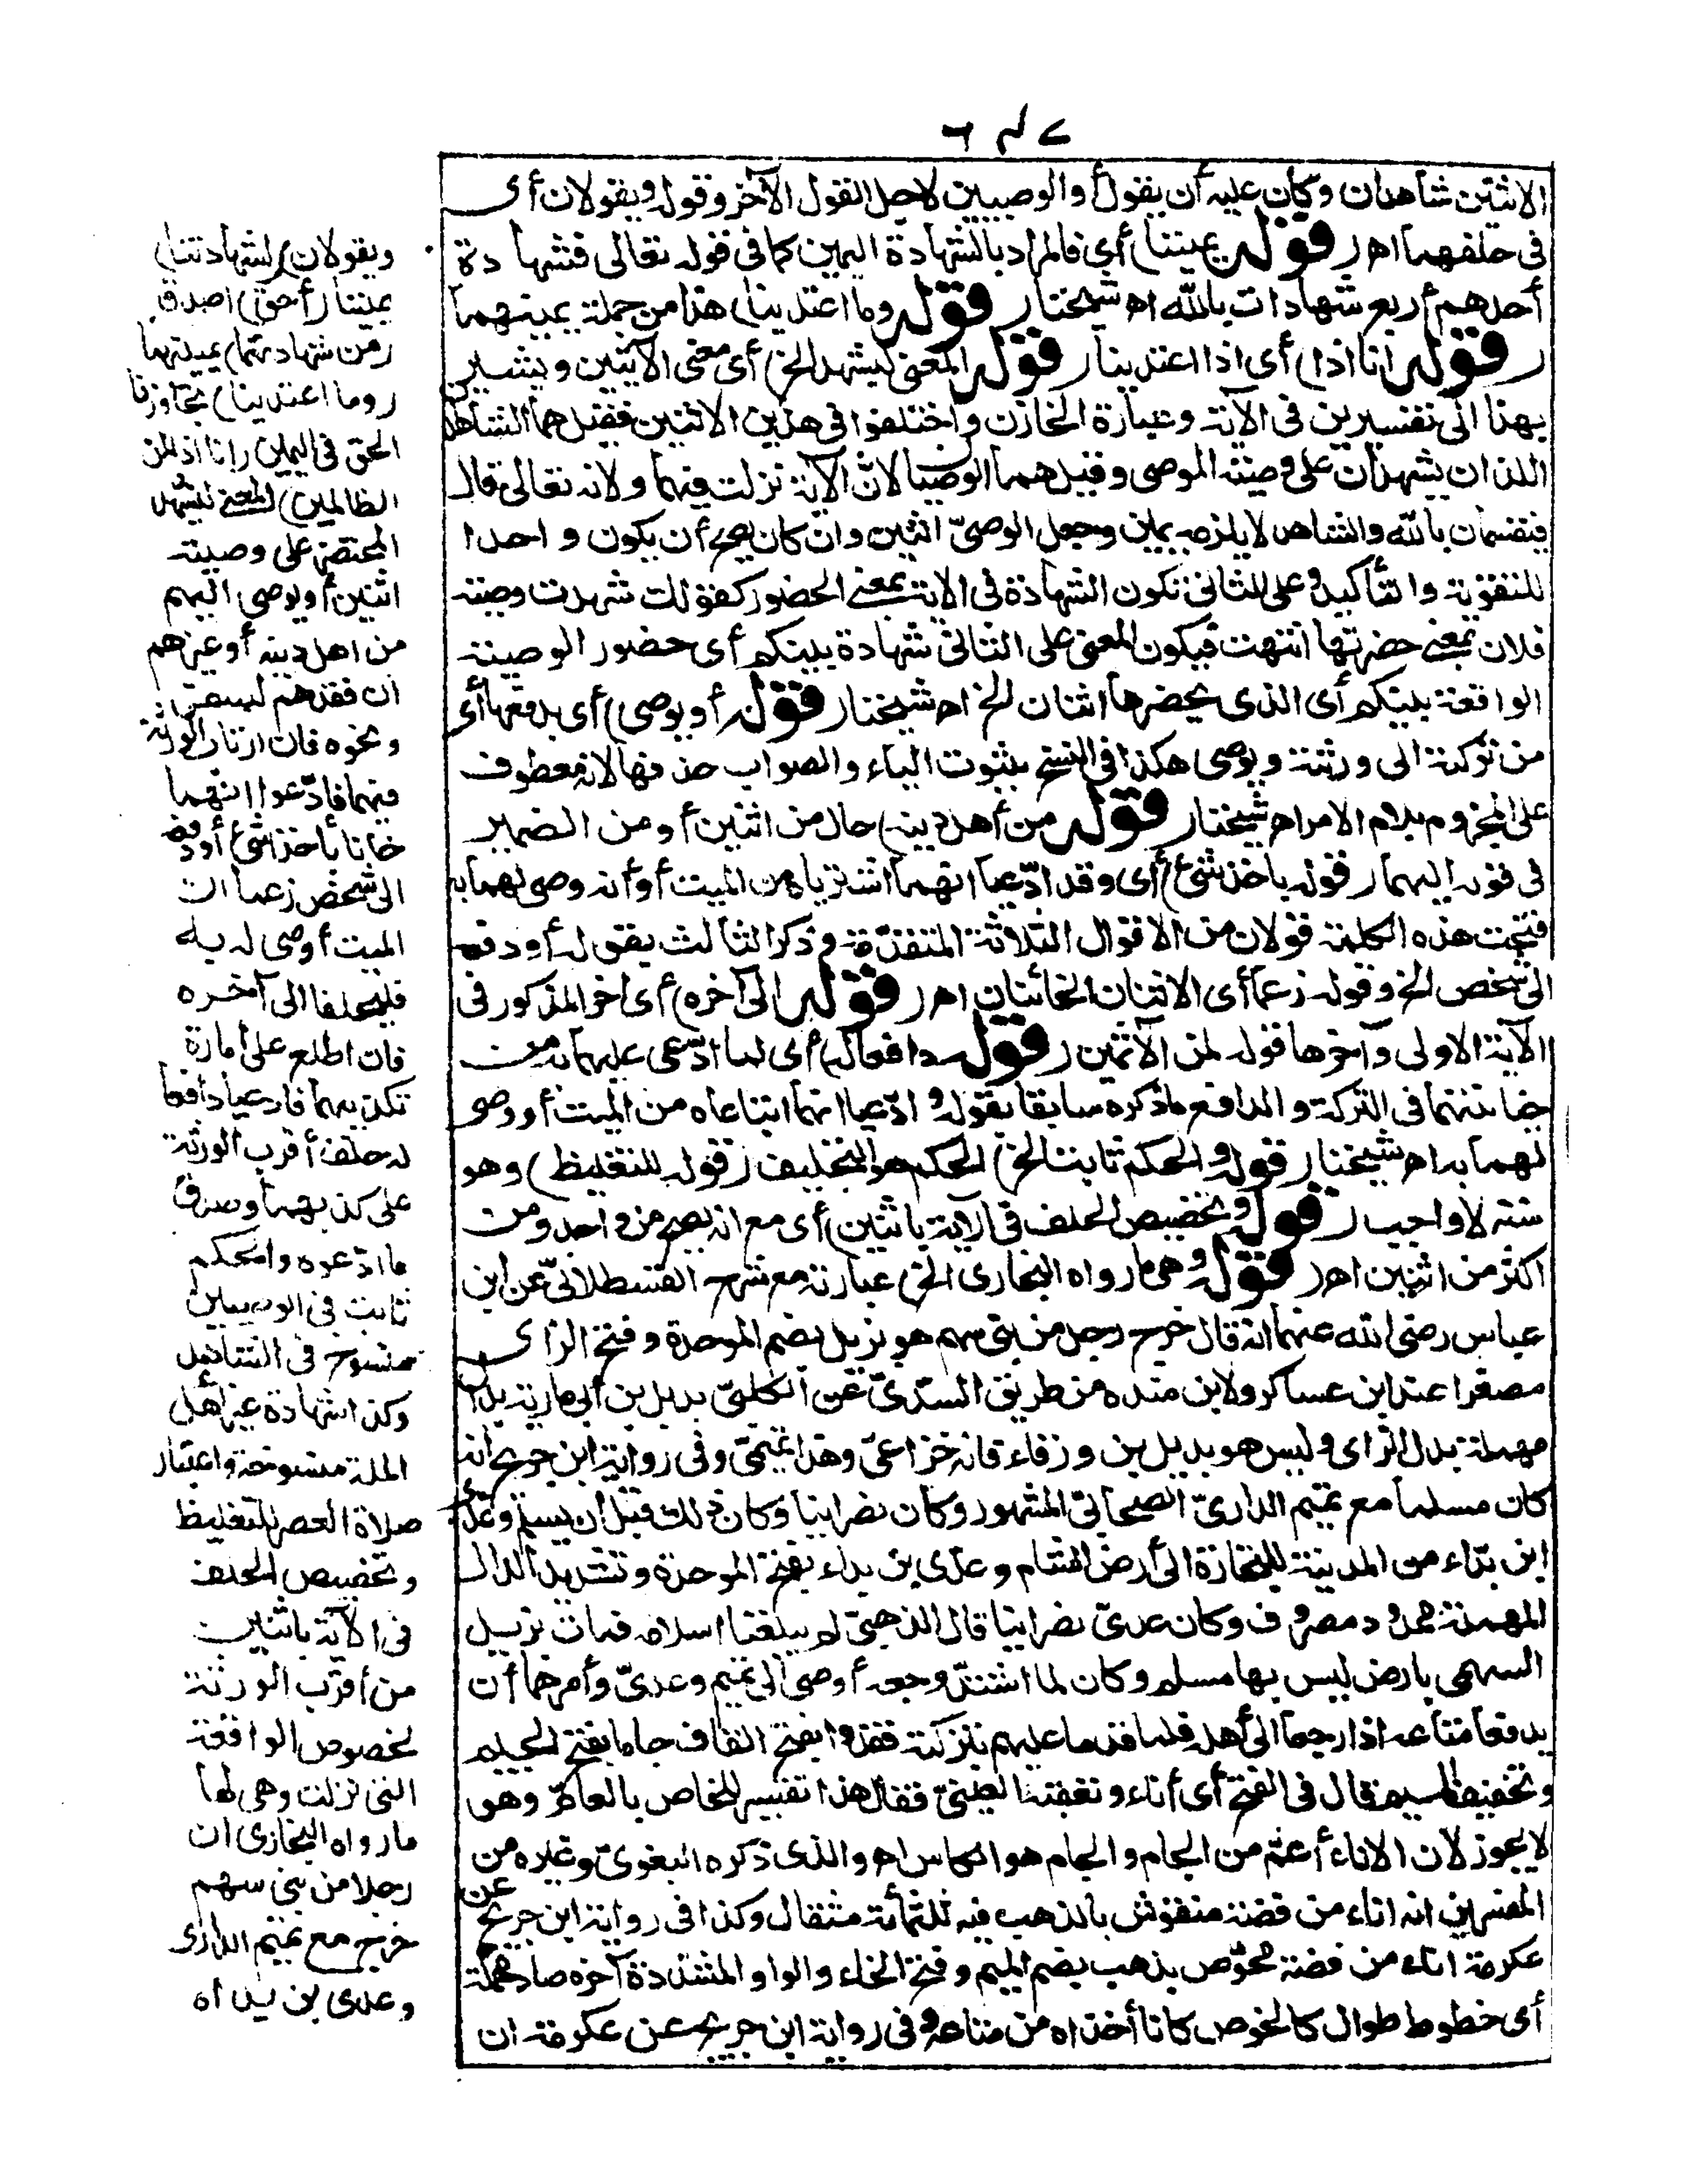 الاثنين شاهدان وكان عليه أن يقول أو الوصيين لاجل القول الآخر وقوله ويقولان أى
فى حلفهما اه (قوله يميننا) أى فالمراد بالشهادة اليمين كما فى قوله تعالى فشهادة
أحدهم أربع شهادات بالله اه شيخنا (قوله وما اعتدينا) هذا من جملة يمينهما
(قوله انا اذا) أى اذا اعتدينا (قوله المعنى ليشهد الخ) أى معنى الآيتين ويشير
بهذا الى تفسيرين فى الآية وعبارة الخازن واختلفوا فى هذين الاثنين فقيل هما الشاهدان
اللذان يشهدان على وصية الموصى وقيل هما الوصيان لان الآية نزلت فيهما ولانه تعالى قال
فيقسمان بالله والشاهد لا يلزمه يمين وجعل الوصىّ اثنين وان كان يصح أن يكون واحدا
للتقوية والتأكيد وعلى الثانى تكون الشهادة فى الآية بمعنى الحضور كقولك شهدت وصية
فلان بمعنى حضرتها انتهت فيكون المعنى على الثانى شهادة بينكم أى حضور الوصية
الواقعة بينكم أى الذى يحضرها اثنان الخ اه شيخنا (قوله أو يوصى) أى يدفعها أى
من تركته الى ورثته ويوصى هكذا فى النسخ بثبوت الياء والصواب حذفها لانه معطوف
على المجزوم بلام الامر اه شيخنا (قوله من أهل دينه) حال من اثنين أو من الضمير
فى قوله اليهما (قوله بأخذ شئ) أى وقد ادّعيا انهما اشترياه من الميت أو أنه وصى لهما به
فتحت هذه الكلمة قولان من الاقوال الثلاثة المتقدّمة وذكر الثالث بقوله أو دفعه
الى شخص الخ وقوله زعما أى الاثنان الخائنان اه (قوله الى آخره) أى آخر المذكور فى
الآية الاولى وآخرها قوله لمن الآثمين (قوله دافعا له) أى لما ادّعى عليهما به من
خيانتهما فى التركة والدافع ما ذكره سابقا بقوله وادّعيا انهما ابتاعاه من الميت أو وصى
لهما به اه شيخنا (قوله والحكم ثابت الخ) الحكم هو التحليف (قوله للتغليظ) وهو
سنة لا واجب (قوله وتخصيص الحلف فى الآية باثنين) أى مع انه يصح من واحد ومن
اكثر من اثنين اه (قوله وهى ما رواه البخارى الخ) عبارته مع شرح القسطلانىّ عن ابن
عباس رضى الله عنهما انه قال خرج رجل من بنى سهم هو بزيل بضم الموحدة وفتح الزاى
مصغرا عند ابن عساكر ولابن منده من طريق السدّىّ عن الكلبىّ بديل بن أبى مارية بدال
مهملة بدل الزاى وليس هو بديل بن ورقاء فانه خزاعىّ وهذا تميمىّ وفى رواية ابن جريج انه
كان مسلما مع تميم الدارىّ الصحابىّ المشهور وكان نصرانيا وكان ذلك قبل أن يسلم وعدىّ
ابن بدّاء من المدينة للتجارة الى أرض الشام وعدى بن بداء بفتح الموحدة وتشديد الدال
المهملة ممدود مصروف وكان عدىّ نصرانيا قال الذهبىّ لم يبلغنا اسلامه فمات بزيل
السهمى بارض ليس بها مسلم وكان لما اشتدّ وجعه أوصى الى تميم وعدىّ وأمرهما أن
يدفعا متاعه اذا رجعا الى أهله فلما قدما عليهم بتركته فقدوا بفتح القاف جاما بفتح الجيم
وتخفيف الميم قال فى الفتح أى أناء وتعقبه العينىّ فقال هذا تفسير للخاص بالعام وهو
لا يجوز لان الاناء أعمّ من الجام والجام هو الكاس اه والذى ذكره البغوىّ وغيره من
المفسرين انه اناء من فضة منقوش بالذهب فيه ثلثمائة مثقال وكذا فى رواية ابن جريج عن
عكرمة اناء من فضة مخوّص بذهب بضم الميم وفتح الخاء والواو المشدّدة آخره صاد مهملة
أى خطوط طوال كالخوص كانا أخذاه من متاعه وفى رواية ابن جريج عن عكرمة ان
ويقولان (لشهادتنا)
يميننا (أحق) اصدق
(من شهادتهما) يمينهما
(وما اعتدينا) تجاوزنا
الحق فى اليمين (انا اذا لمن
الظالمين) المعنى ليشهد
المحتضر على وصيته
اثنين أو يوصى اليهم
من اهل دينه أو غيرهم
ان فقدهم لسفر
ونحوه فان ارتاب الورثة
فيهما فادّعوا انهما
خانا بأخذ شئ أو دفعه
الى شخص زعما ان
الميت أوصى له به
فليحلفا الى آخره
فان اطلع على أمارة
تكذيبهما فادعيا دافعا
له حلف أقرب الورثة
على كذبهما وصدق
ما ادّعوه والحكم
ثابت فى الوصيين
منسوخ فى الشاهدين
وكذا شهادة غير أهل
الملة منسوخة واعتبار
صلاة العصر للتغليظ
وتخصيص الحلف
فى الآية باثنين
من أقرب الورثة
لخصوص الواقعة
التى نزلت وهى لها
ما رواه البخارى ان
رجلا من بنى سهم
خرج مع تميم الدارى
وعدى بن بداء